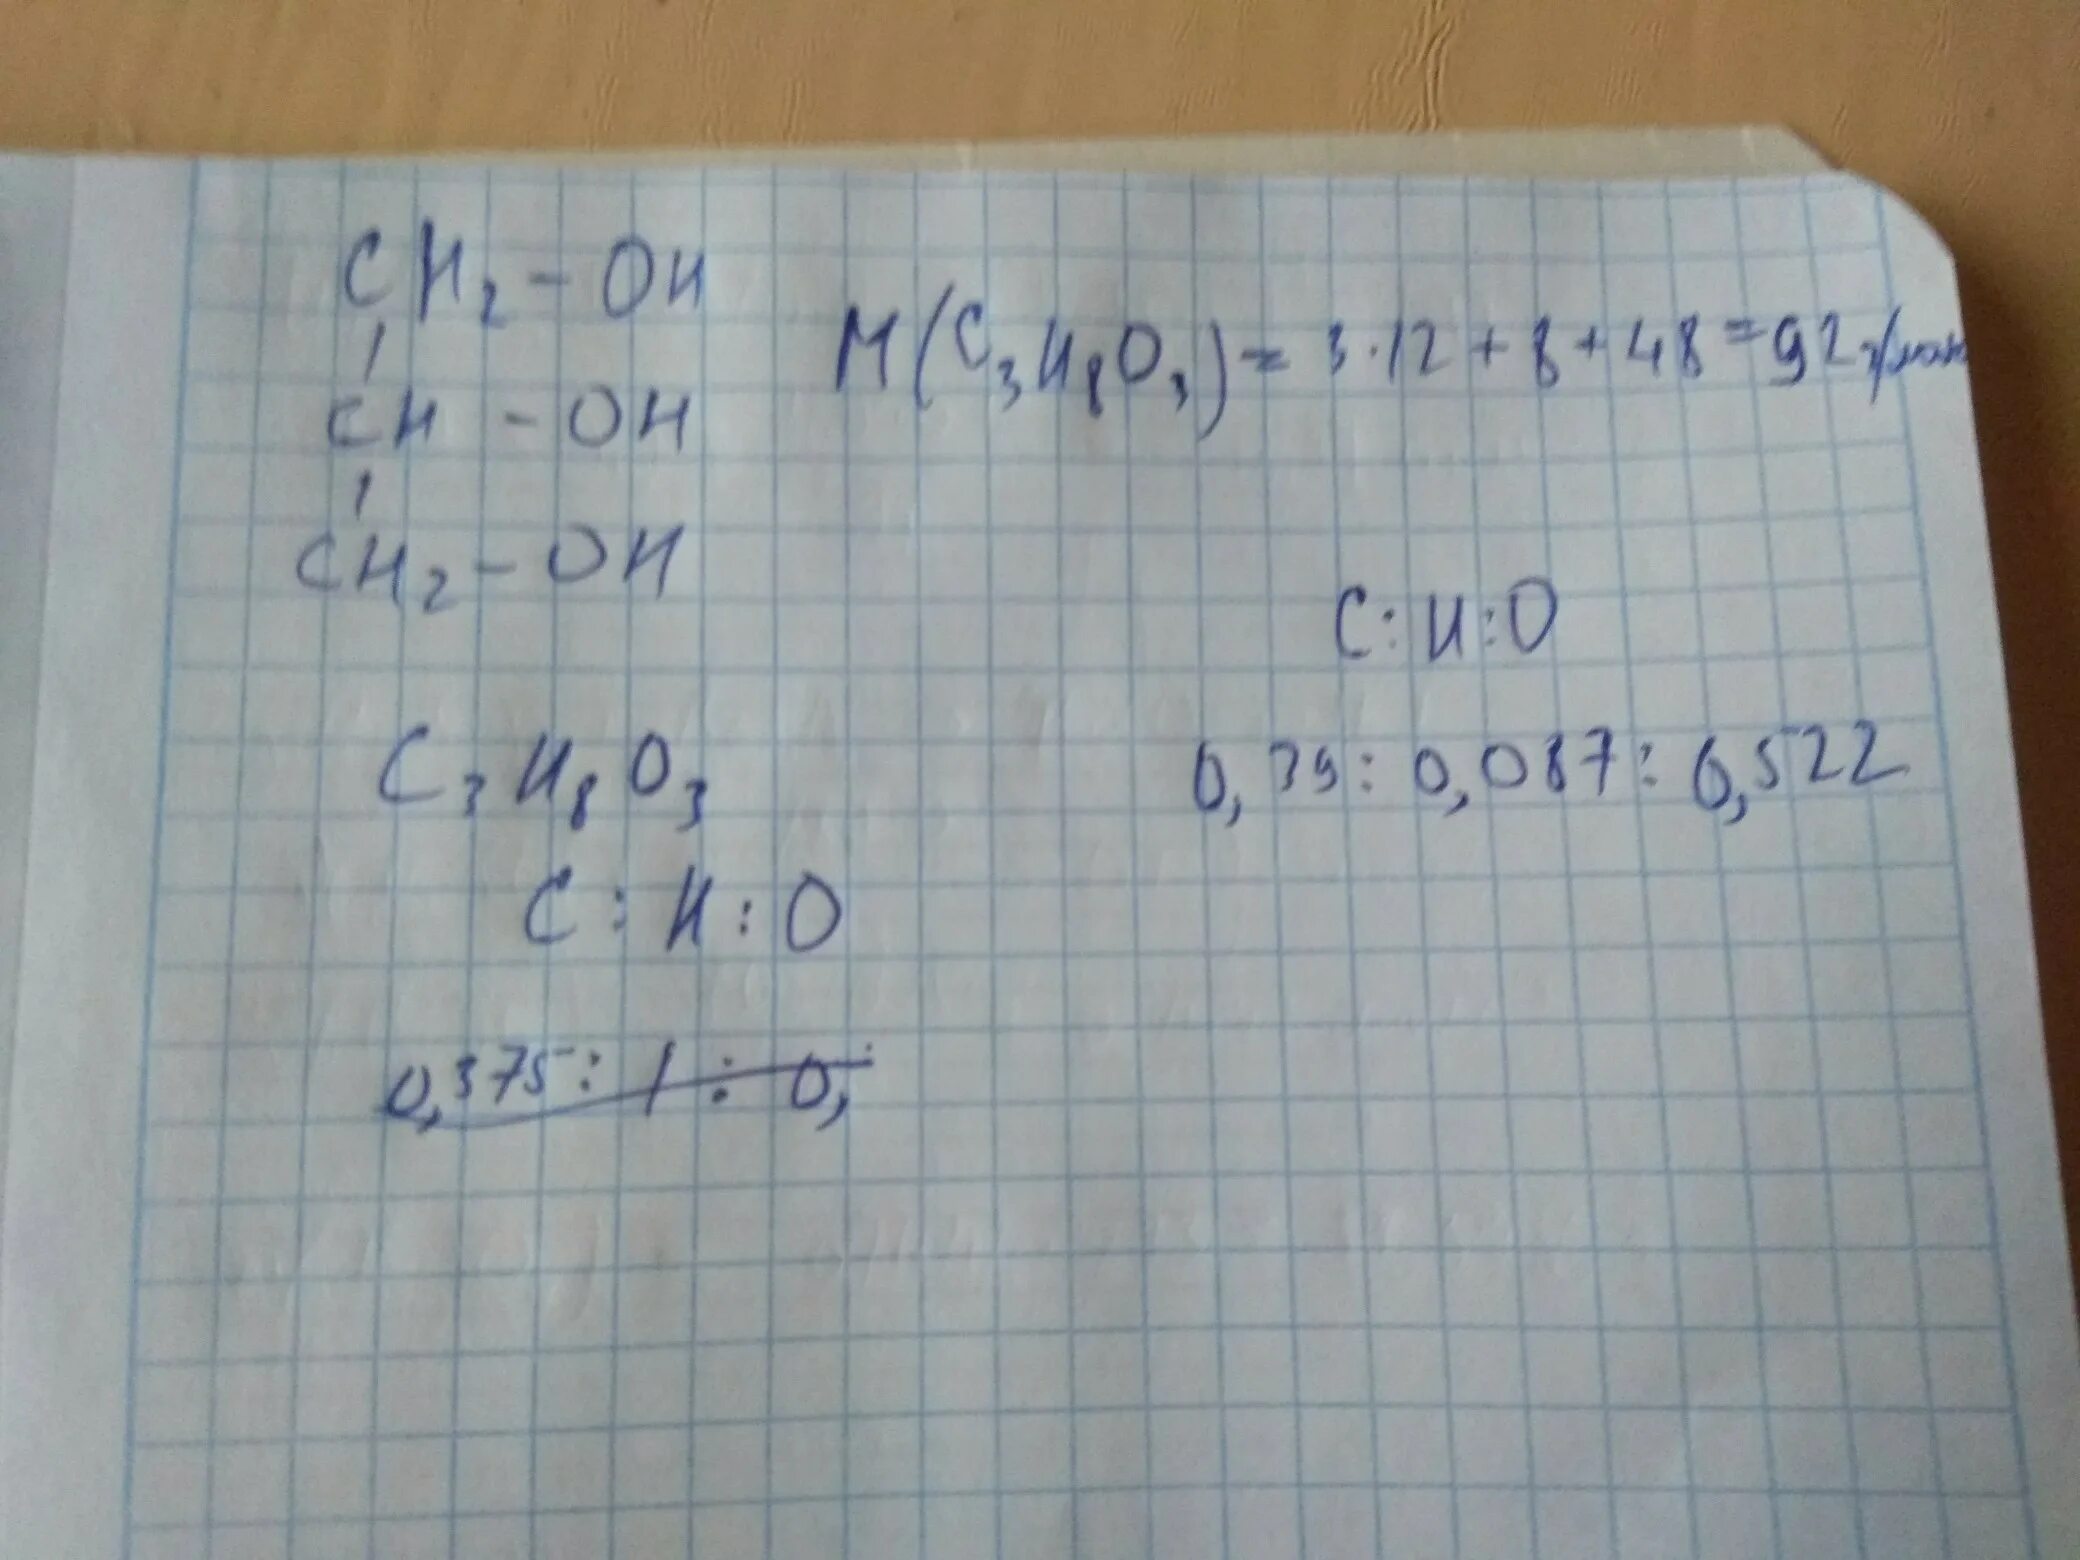 CH₂ - OH
CH - OH
CH₂ - OH
M(C₃H₈O₃) = 3·12 + 8 + 48 = 92 г/моль
C:H:O
0,39 : 0,087 : 0,522
C₃H₈O₃
C : H : O
0,375 : 1 : 0,